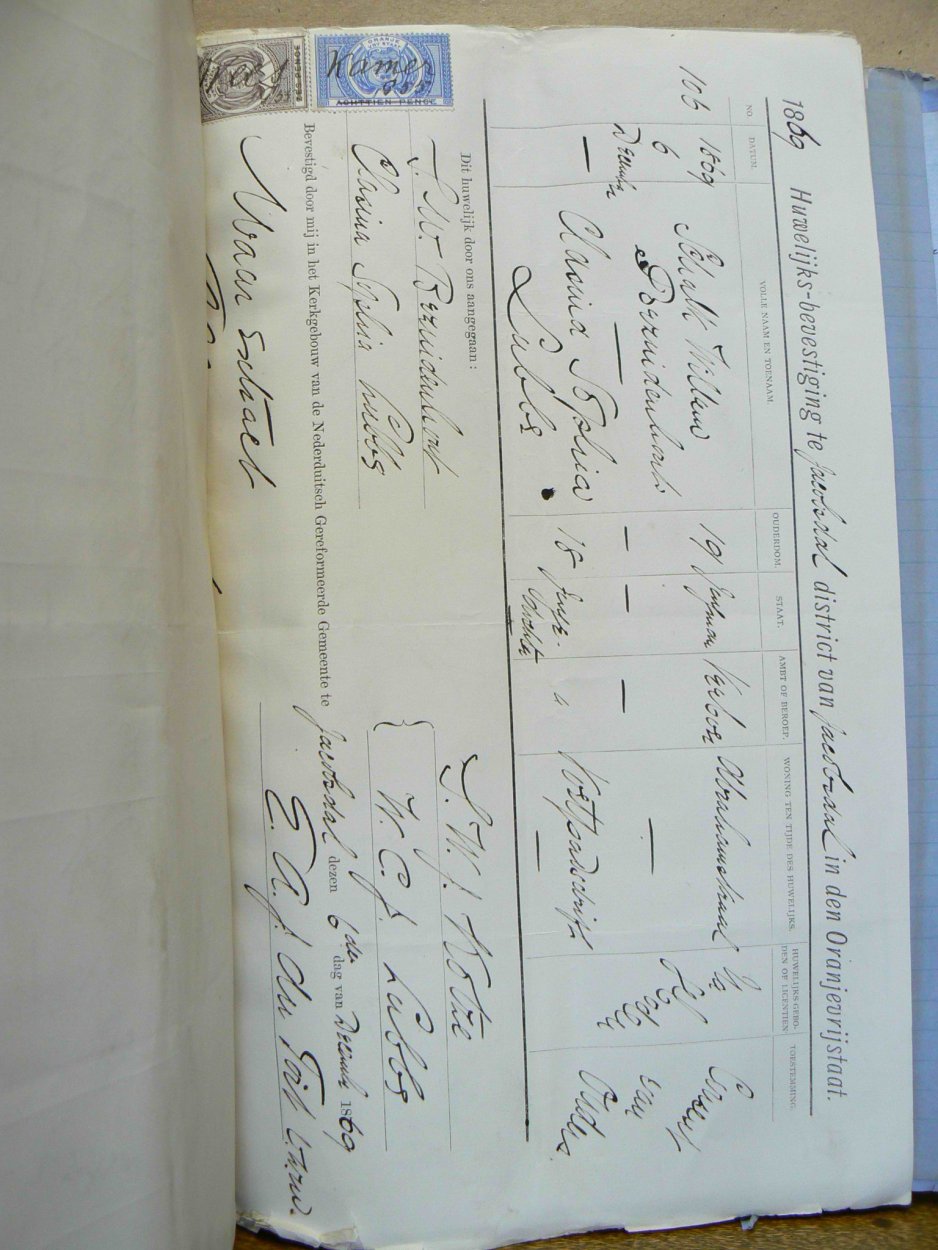 1869 Huwelijks-bevestiging te Jacobsdal district van Jacobsdal in den Oranjevrijstaat.
NO. DATUM. VOLLE NAAM EN TOENAAM. OUDERDOM. STAAT. AMBT OF BEROEP. WONING TEN TIJDE DES HUWELIJKS. HUWELIJKS-GEBODEN OF LICENTIEN. TOESTEMMING.
106 1869 Schalk Willem 19 Jonkman Abrahamskraal
6 Bezuidenhout
December
Clasina Sophia 18 Jonge-
Lubbe dochter Ouders
Dit huwelijk door ons aangegaan:
S. W. Bezuidenhout
Clasina Sophia Lubbe
S. W. J. Kotze
W. C. J. Lubbe
Bevestigd door mij in het Kerkgebouw van de Nederduitsch Gereformeerde Gemeente te Jacobsdal dezen 6de dag van Decemb 1869
Waar Echt
E. A. J. du Toit
ORANJE VRIJ STAAT
ACHTTIEN PENCE